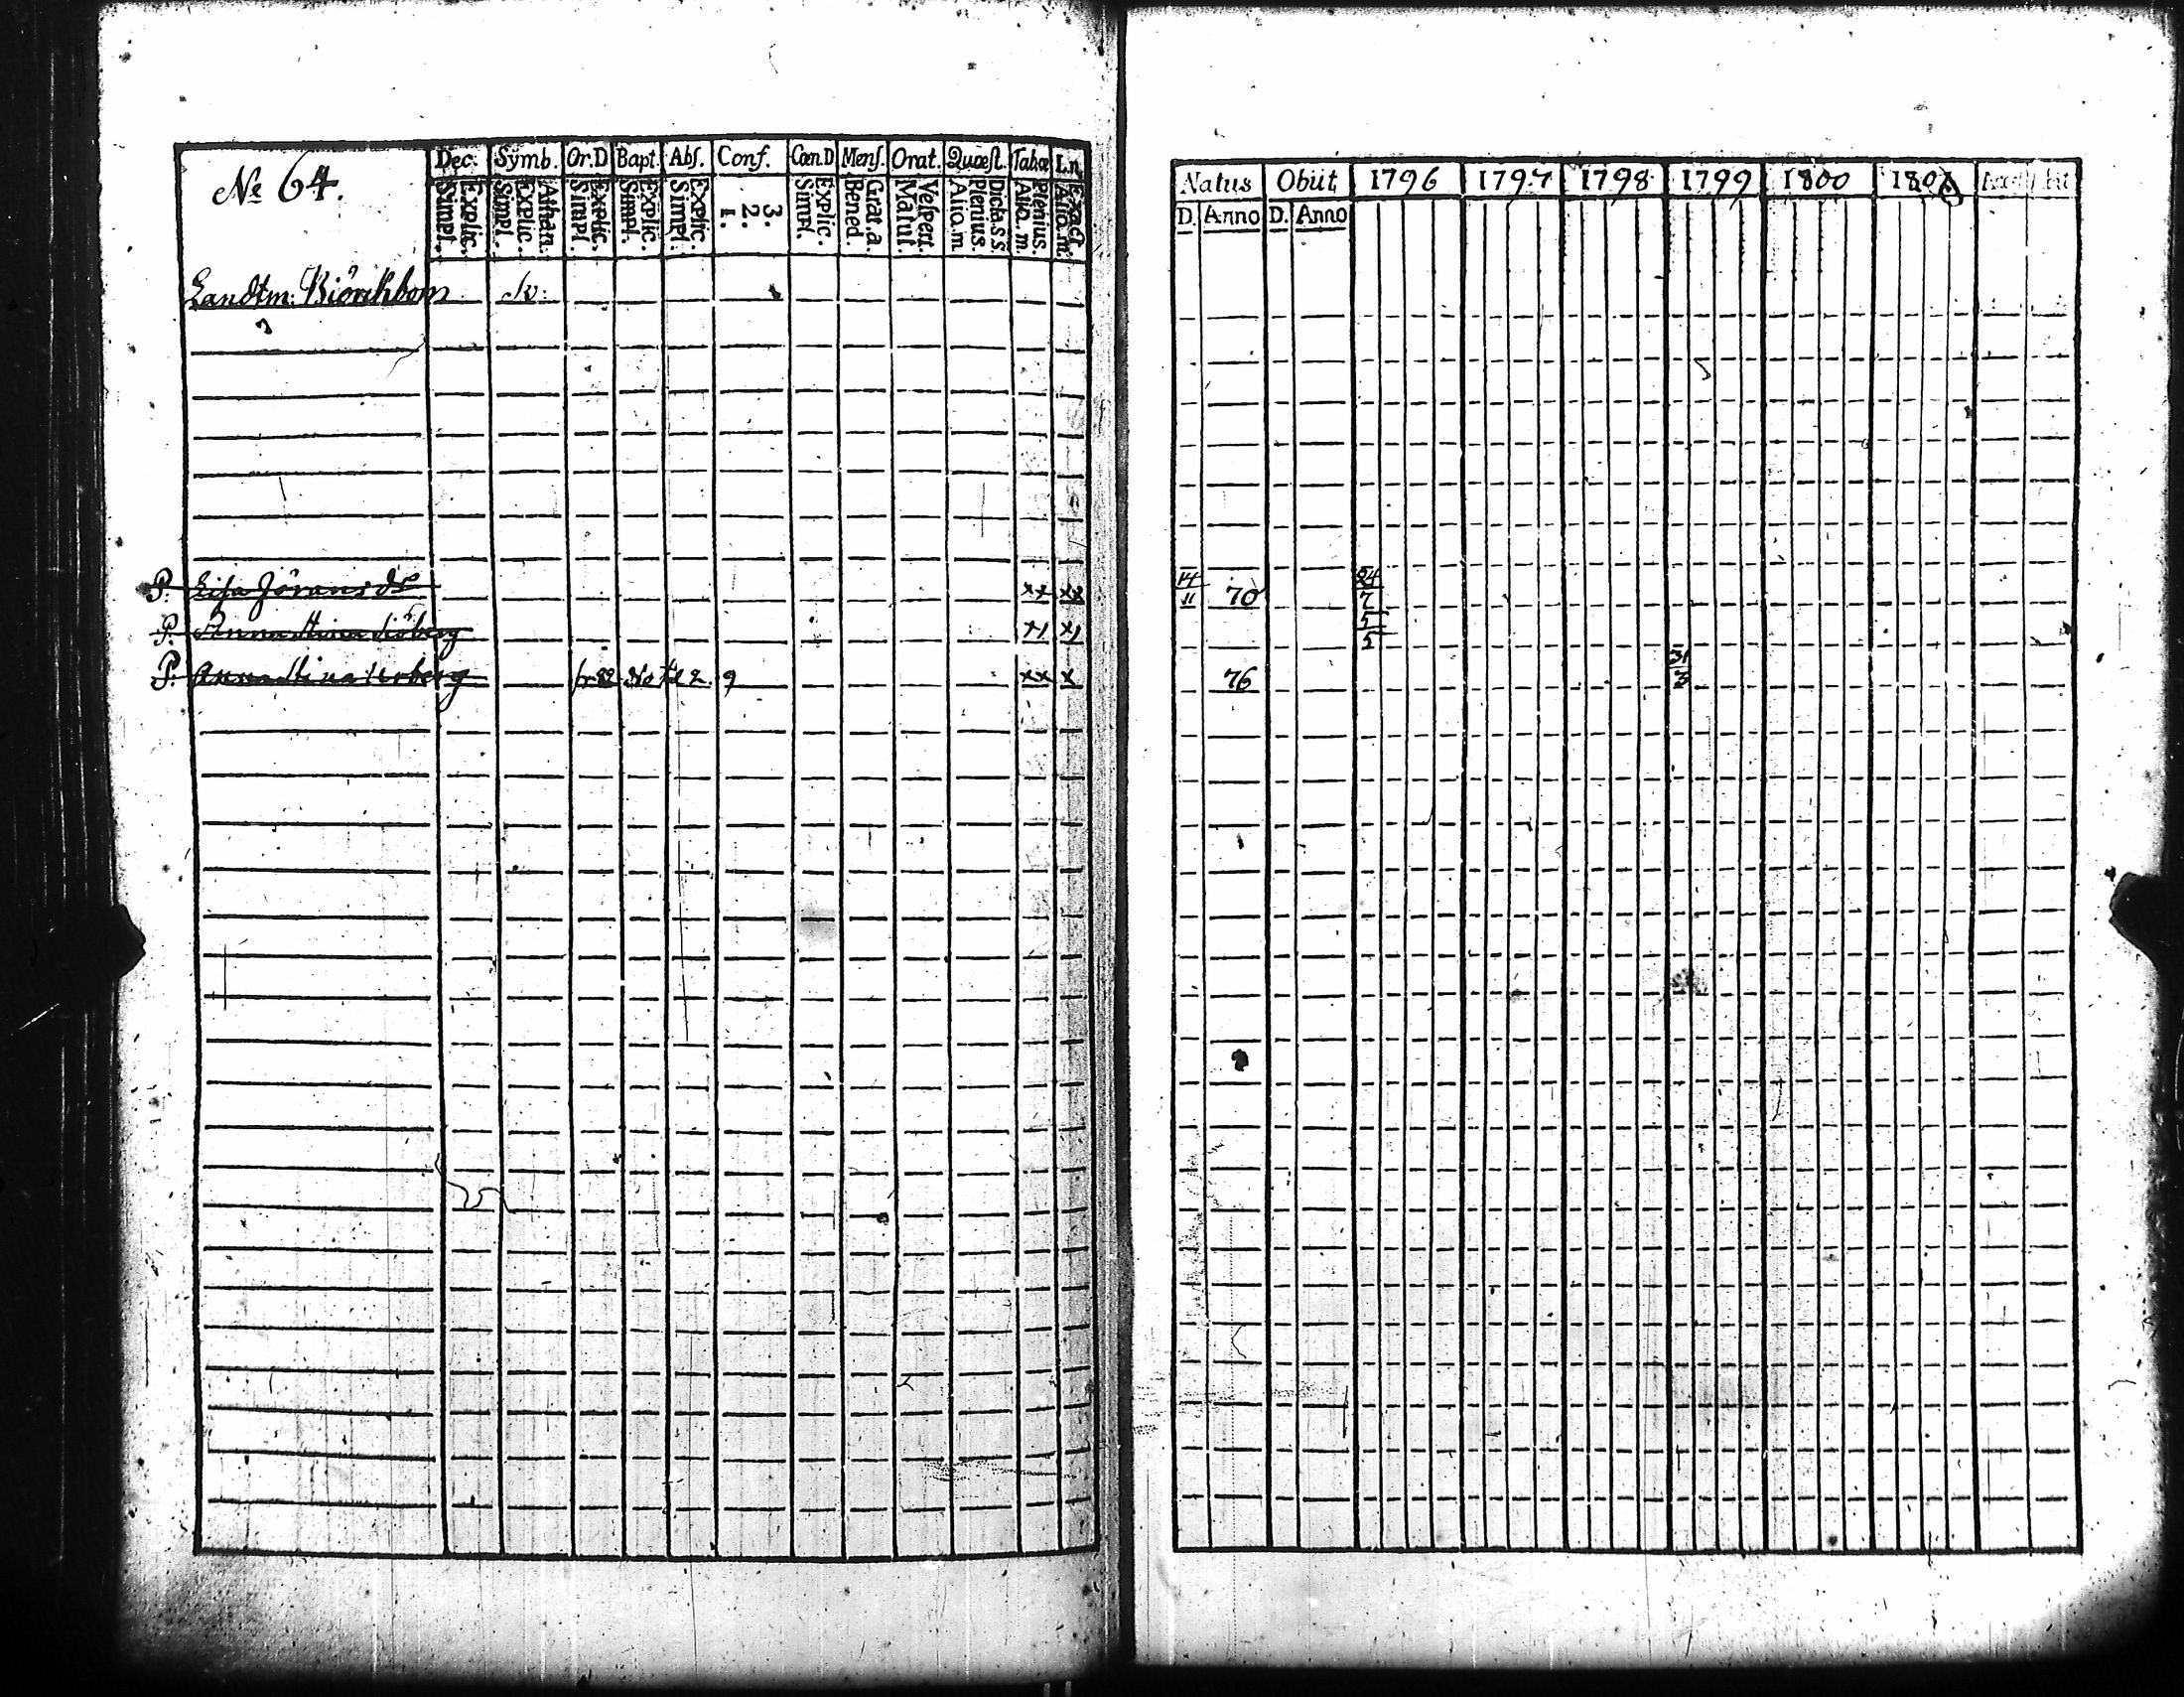 № 64.
Dec. Symb. Or.D Bapt. Abs. Conf. Cœn.D Mens. Orat. Quæst. Tabœ L.n
Explic. Simpl. Athan. Explic. Simpl. Explic. Simpl. Explic. Simpl. Explic. Simpl. 3. 2. 1. Explic. Simpl. Grat.a. Bened. Vespert. Matut. Dicta.s.s. Plenius. Aliq.m. Plenius. Aliq.m. Exact. Aliq.m.
Landtm. Biörckbom
P. Lisa Jörans dr xx xx
P. Anna Stina Siöberg x1 x1
P. Anna Stina xx x
Natus Obiit 1796 1797 1798 1799 1800 1801
D. Anno D. Anno
14/11 70 24/7
5/5
76 31/3